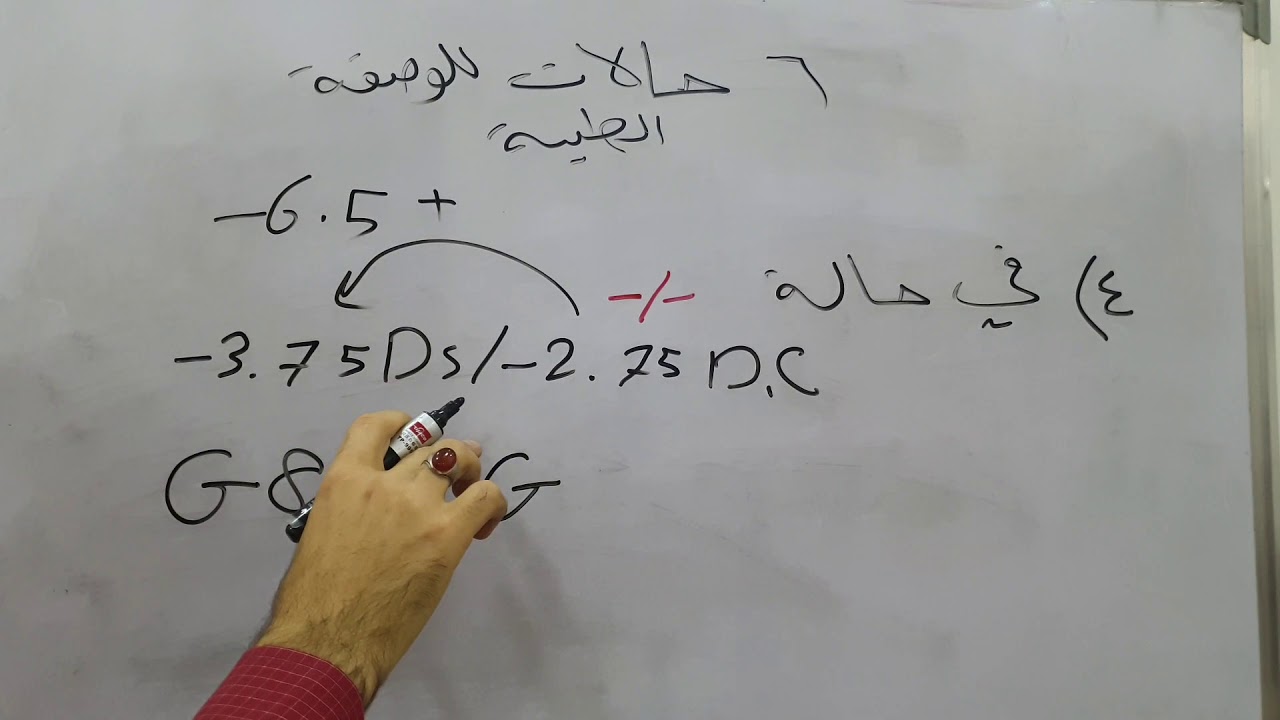 ٦ حالات للوصفة
الطبية
-6.5 +
٤) في حالة -/-
-3.75Ds/-2.75 D.C
G8 G